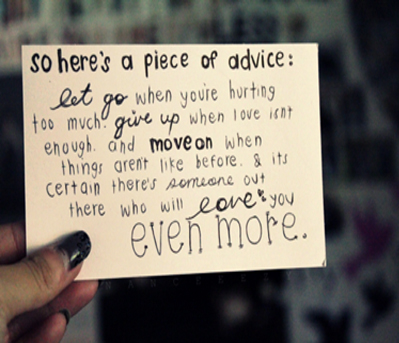 so here's a piece of advice:
let go when you're hurting
too much. give up when love isnt
enough. and move on when
things aren't like before. & its
certain there's someone out
there who will love you
even more.